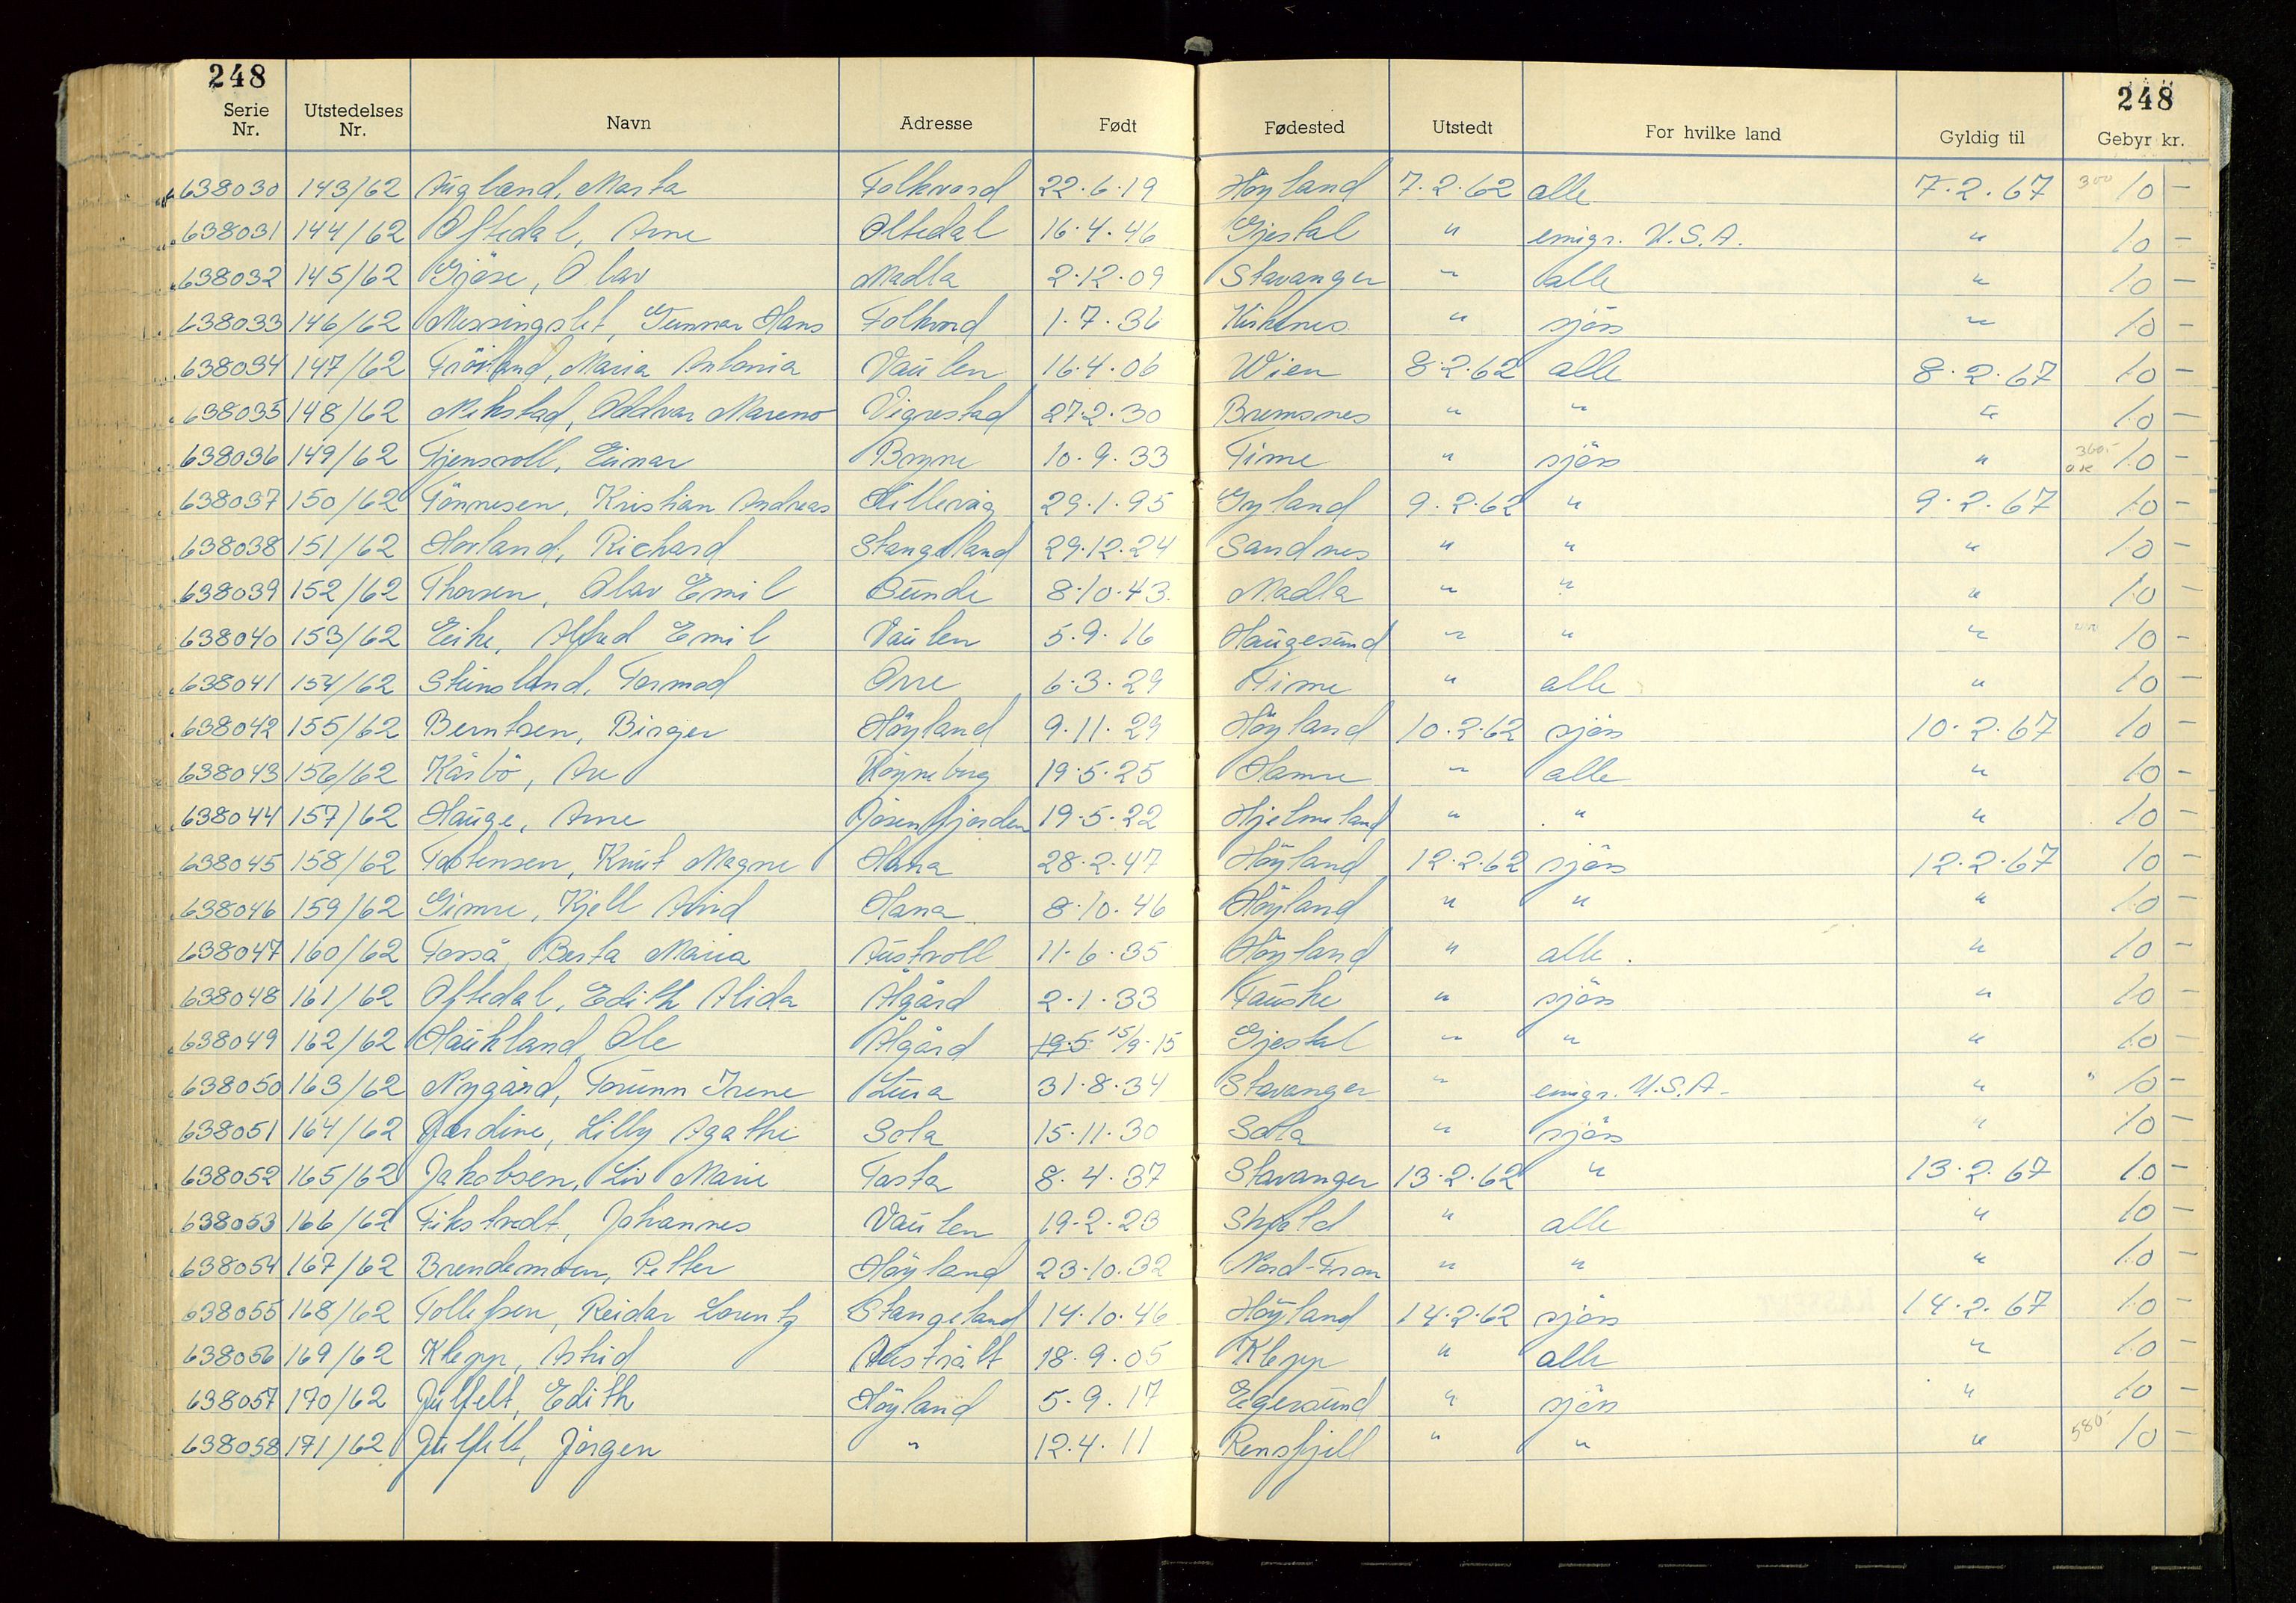 248 248
Serie Nr. Utstedelses Nr. Navn Adresse Født Fødested Utstedt For hvilke land Gyldig til Gebyr kr.
638030 143/62 Augland, Marta Folkvord 22.6.19 Høyland 7.2.62 alle 7.2.67 300 10 -
638031 144/62 Oftedal, Arne Oltedal 16.4.46 Gjestal " emigr. U.S.A. " 10 -
638032 145/62 Gjöse, Olav Madla 2.12.09 Stavanger " alle " 10 -
638033 146/62 Messingslet, Gunnar Hans Folkvord 1.7.36 Kirkenes " sjöss " 10 -
638034 147/62 Fröiland, Maria Antonia Vaulen 16.4.06 Wien 8.2.62 alle 8.2.67 10 -
638035 148/62 Mekstad, Oddvar Mareno Vigrestad 27.2.30 Bremsnes " " " 10 -
638036 149/62 Tjensvoll, Einar Bryne 10.9.33 Time " sjöss " 10 -
638037 150/62 Tönnesen, Kristian Andreas Hillevåg 29.1.95 Gyland 9.2.62 " 9.2.67 10 -
638038 151/62 Hovland, Richard Stangeland 29.12.24 Sandnes " " " 10 -
638039 152/62 Thorsen, Olav Emil Sunde 8.10.43 Madla " " " 10 -
638040 153/62 Eike, Alfred Emil Vaulen 5.9.16 Haugesund " " " 10 -
638041 154/62 Steinsland, Tormod Orre 6.3.29 Time " alle " 10 -
638042 155/62 Berntsen, Birger Höyland 9.11.29 Höyland 10.2.62 sjöss 10.2.67 10 -
638043 156/62 Kårbö, Are Röyneberg 19.5.25 Hamre " alle " 10 -
638044 157/62 Hauge, Arne Jösenfjorden 19.5.22 Hjelmeland " " " 10 -
638045 158/62 Torstensen, Knut Magne Hana 28.2.47 Höyland 12.2.62 sjöss 12.2.67 10 -
638046 159/62 Gimre, Kjell Arvid Hana 8.10.46 Höyland " " " 10 -
638047 160/62 Fosså, Berta Maria Austvoll 11.6.35 Höyland " alle " 10 -
638048 161/62 Oftedal, Edith Alida Ålgård 2.1.33 Fauske " sjöss " 10 -
638049 162/62 Haukland Ole Ålgård 19.5 15/9.15 Gjestal " " " 10 -
638050 163/62 Nygård, Torunn Irene Lura 31.8.34 Stavanger " emigr. U.S.A. " 10 -
638051 164/62 Jardine, Lilly Agathe Sola 15.11.30 Sola " sjöss " 10 -
638052 165/62 Jakobsen, Liv Marie Tasta 8.4.37 Stavanger 13.2.62 " 13.2.67 10 -
638053 166/62 Fikstvedt, Johannes Vaulen 19.2.23 Skjold " alle " 10 -
638054 167/62 Brendemoen, Petter Höyland 23.10.32 Nord-Fron " " " 10 -
638055 168/62 Tollefsen, Reidar Lorentz Stangeland 14.10.46 Höyland 14.2.62 sjöss 14.2.67 10 -
638056 169/62 Klepp, Astrid Austrått 18.9.05 Klepp " alle " 10 -
638057 170/62 Julfelt, Edith Höyland 5.9.17 Egersund " sjöss " 10 -
638058 171/62 Julfelt, Jörgen " 12.4.11 Rensfjell " " " 580- 10 -